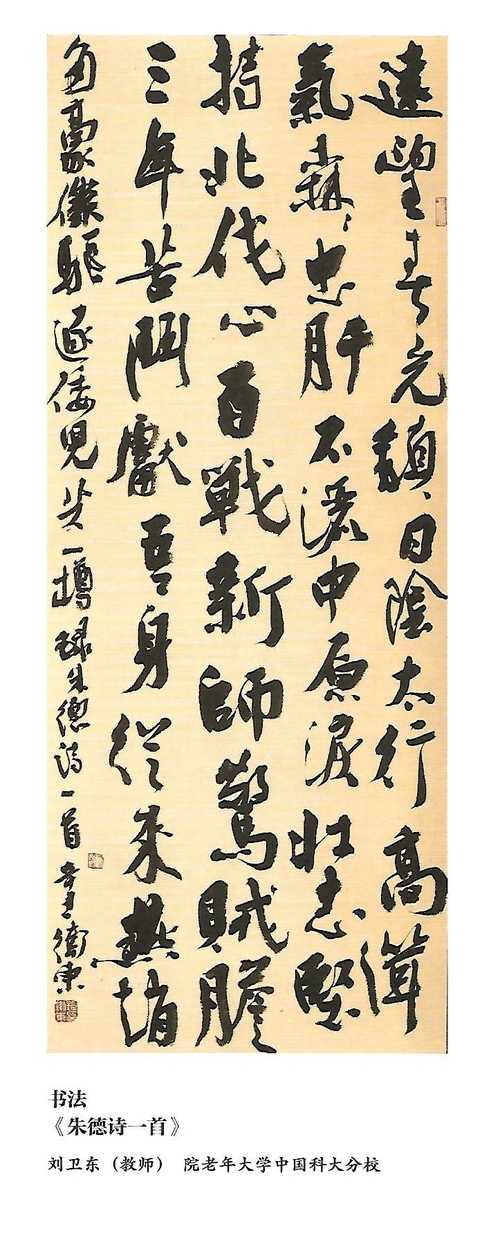 遠望春光鎮日陰太行高聳
氣森〻忠肝不灑中原淚壯志堅
持北伐心百戰新師驚賊膽
三年苦鬥獻吾身從來燕趙
多豪傑驅逐倭兒共一樽錄朱德詩一首衛東
书法
《朱德诗一首》
刘卫东（教师） 院老年大学中国科大分校